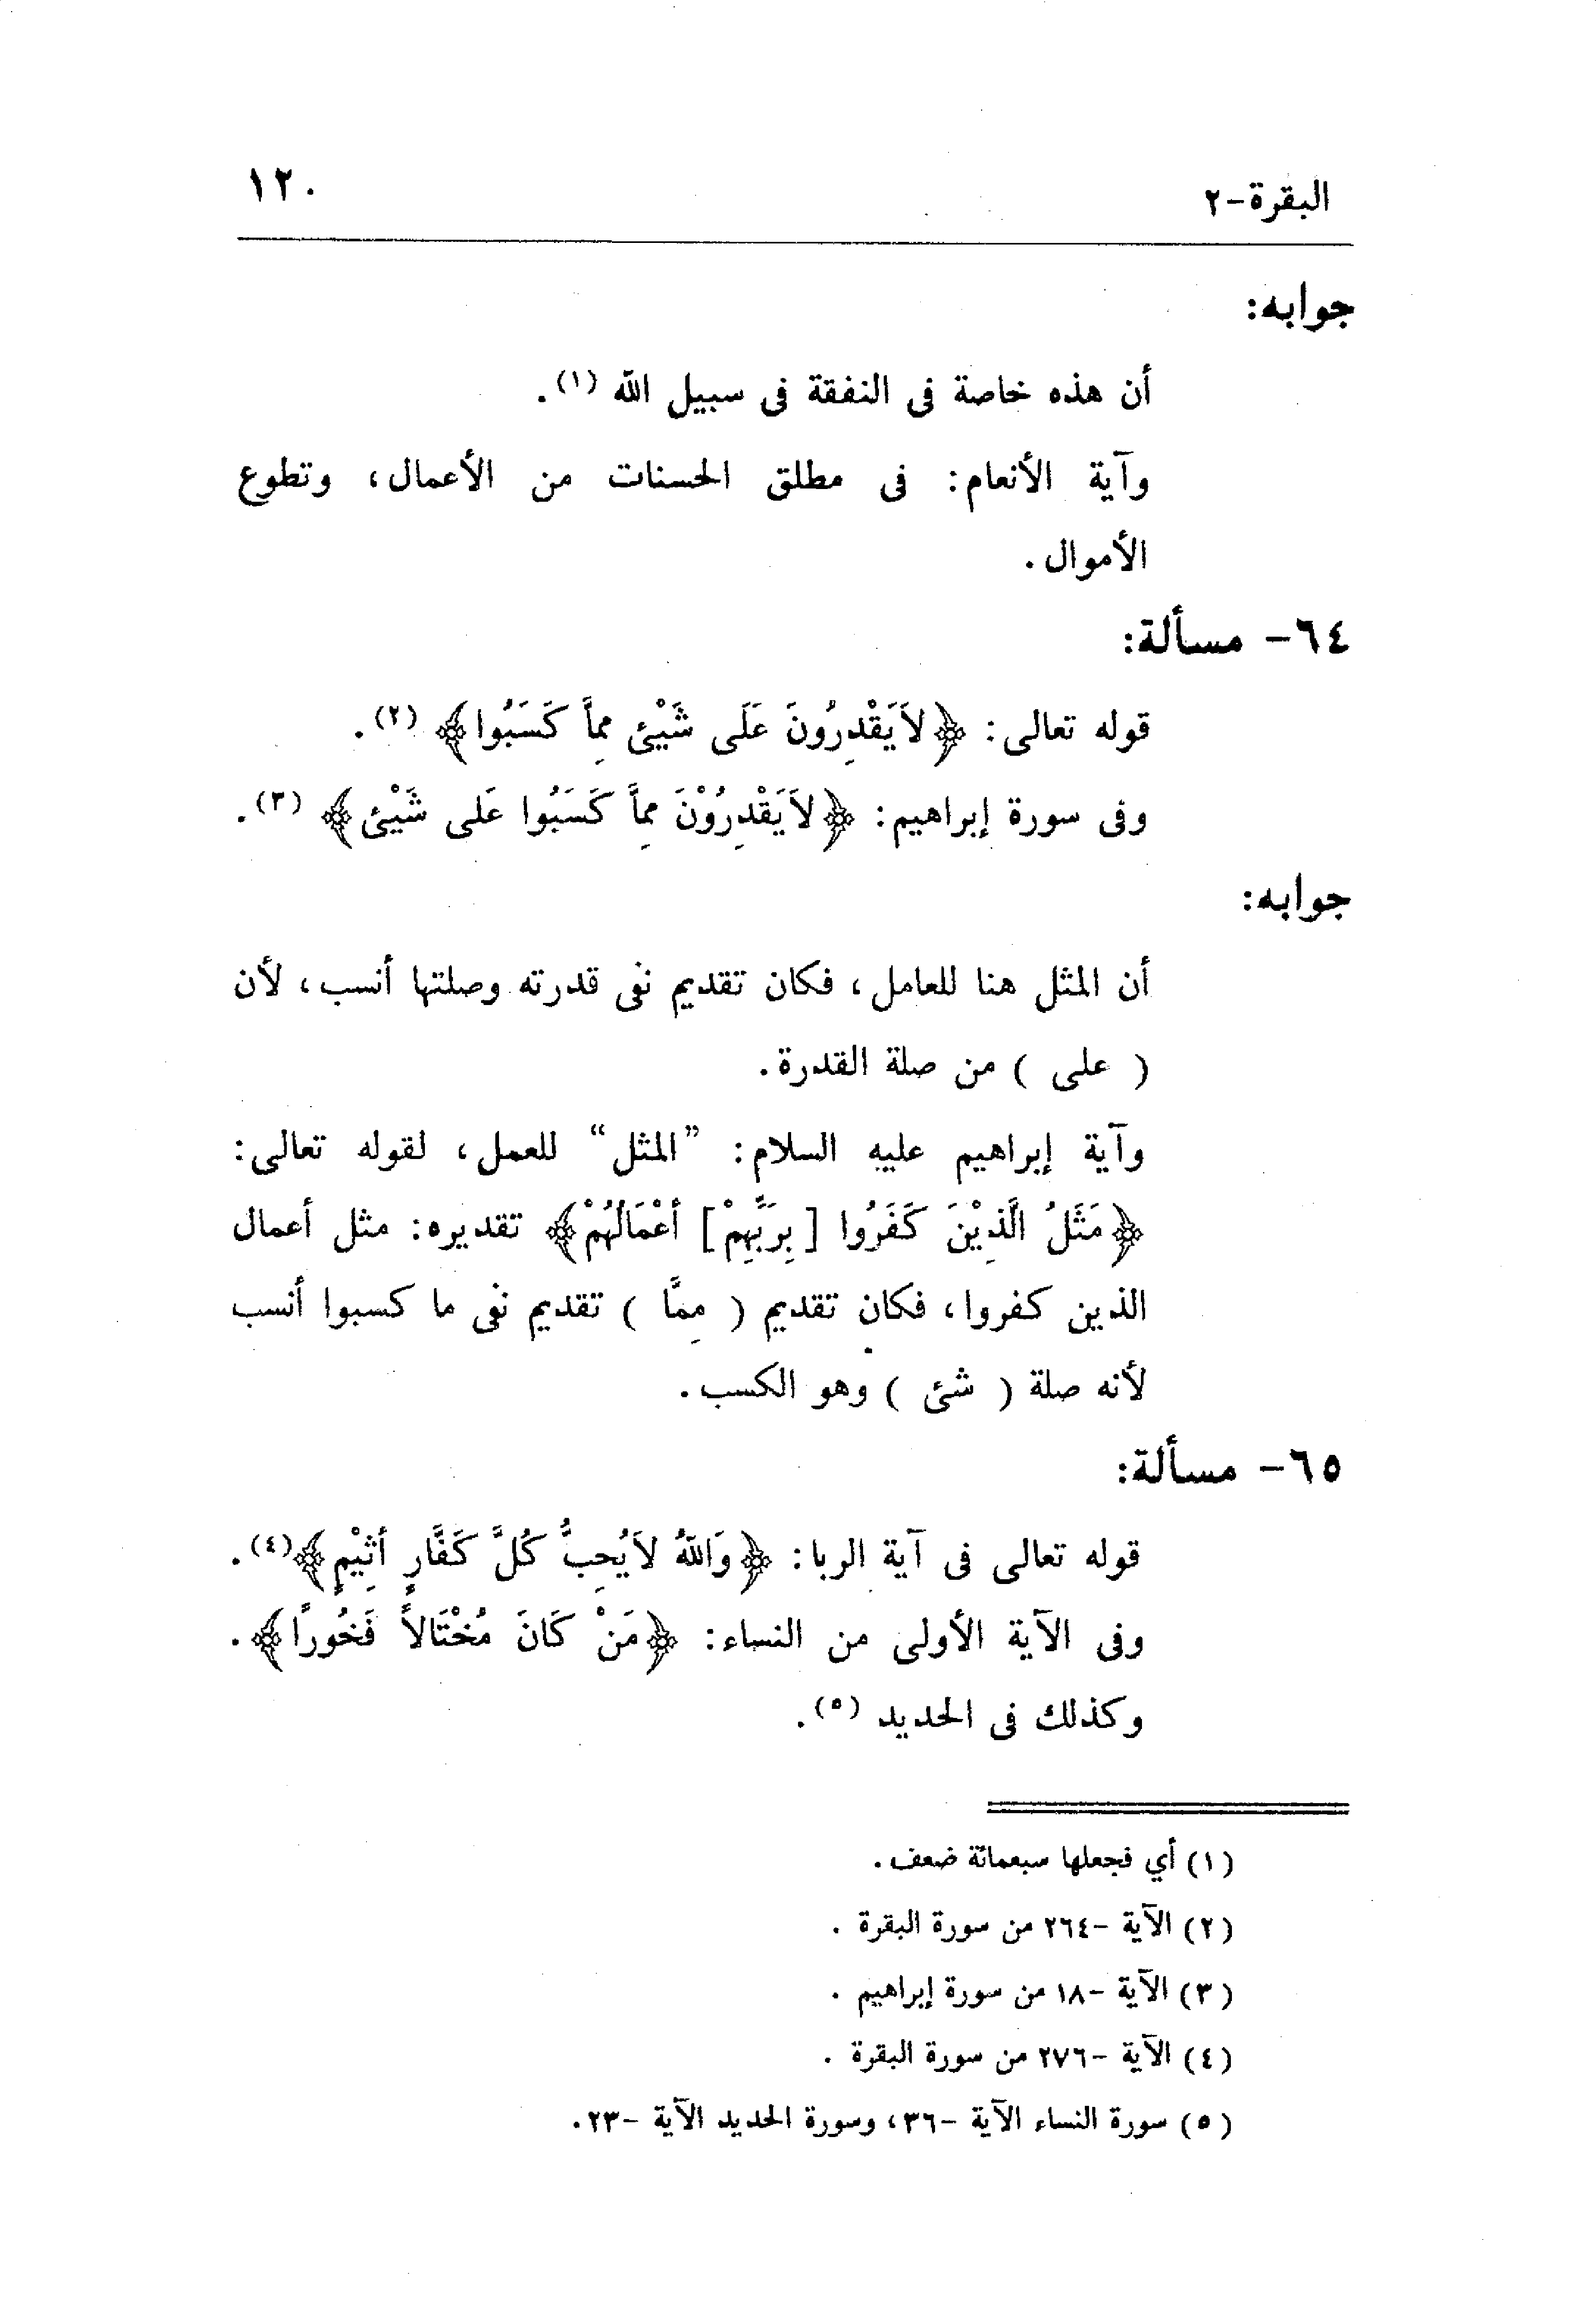 البقرة-٢
١٢٠
جوابه:
أن هذه خاصة فى النفقة فى سبيل الله (١).
وآية الأنعام: فى مطلق الحسنات من الأعمال، وتطوع
الأموال.
٦٤- مسألة:
قوله تعالى: ﴿لاَيَقْدِرُونَ عَلَى شَيْئٍ مِمَّا كَسَبُوا﴾ (٢).
وفى سورة إبراهيم: ﴿لاَيَقْدِرُوْنَ مِمَّا كَسَبُوا عَلى شَيْئٍ﴾ (٣).
جوابه:
أن المثل هنا للعامل، فكان تقديم نفى قدرته وصلتها أنسب، لأن
( على ) من صلة القدرة.
وآية إبراهيم عليه السلام: ”المثل“ للعمل، لقوله تعالى:
﴿مَثَلُ الَّذِيْنَ كَفَرُوا [بِرَبِّهِمْ] أعْمَالُهُمْ﴾ تقديره: مثل أعمال
الذين كفروا، فكان تقديم ( مِمَّا ) تقديم نفى ما كسبوا أنسب
لأنه صلة ( شئ ) وهو الكسب.
٦٥- مسألة:
قوله تعالى فى آية الربا: ﴿وَاللهُ لاَيُحِبُّ كُلَّ كَفَّارٍ أثِيْمٍ﴾(٤).
وفى الآية الأولى من النساء: ﴿مَنْ كَانَ مُخْتَالاً فَخُورًا﴾.
وكذلك فى الحديد (٥).
(١) أي فجعلها سبعمائة ضعف.
(٢) الآية -٢٦٤ من سورة البقرة .
(٣) الآية -١٨ من سورة إبراهيم .
(٤) الآية -٢٧٦ من سورة البقرة .
(٥) سورة النساء الآية -٣٦، وسورة الحديد الآية -٢٣.